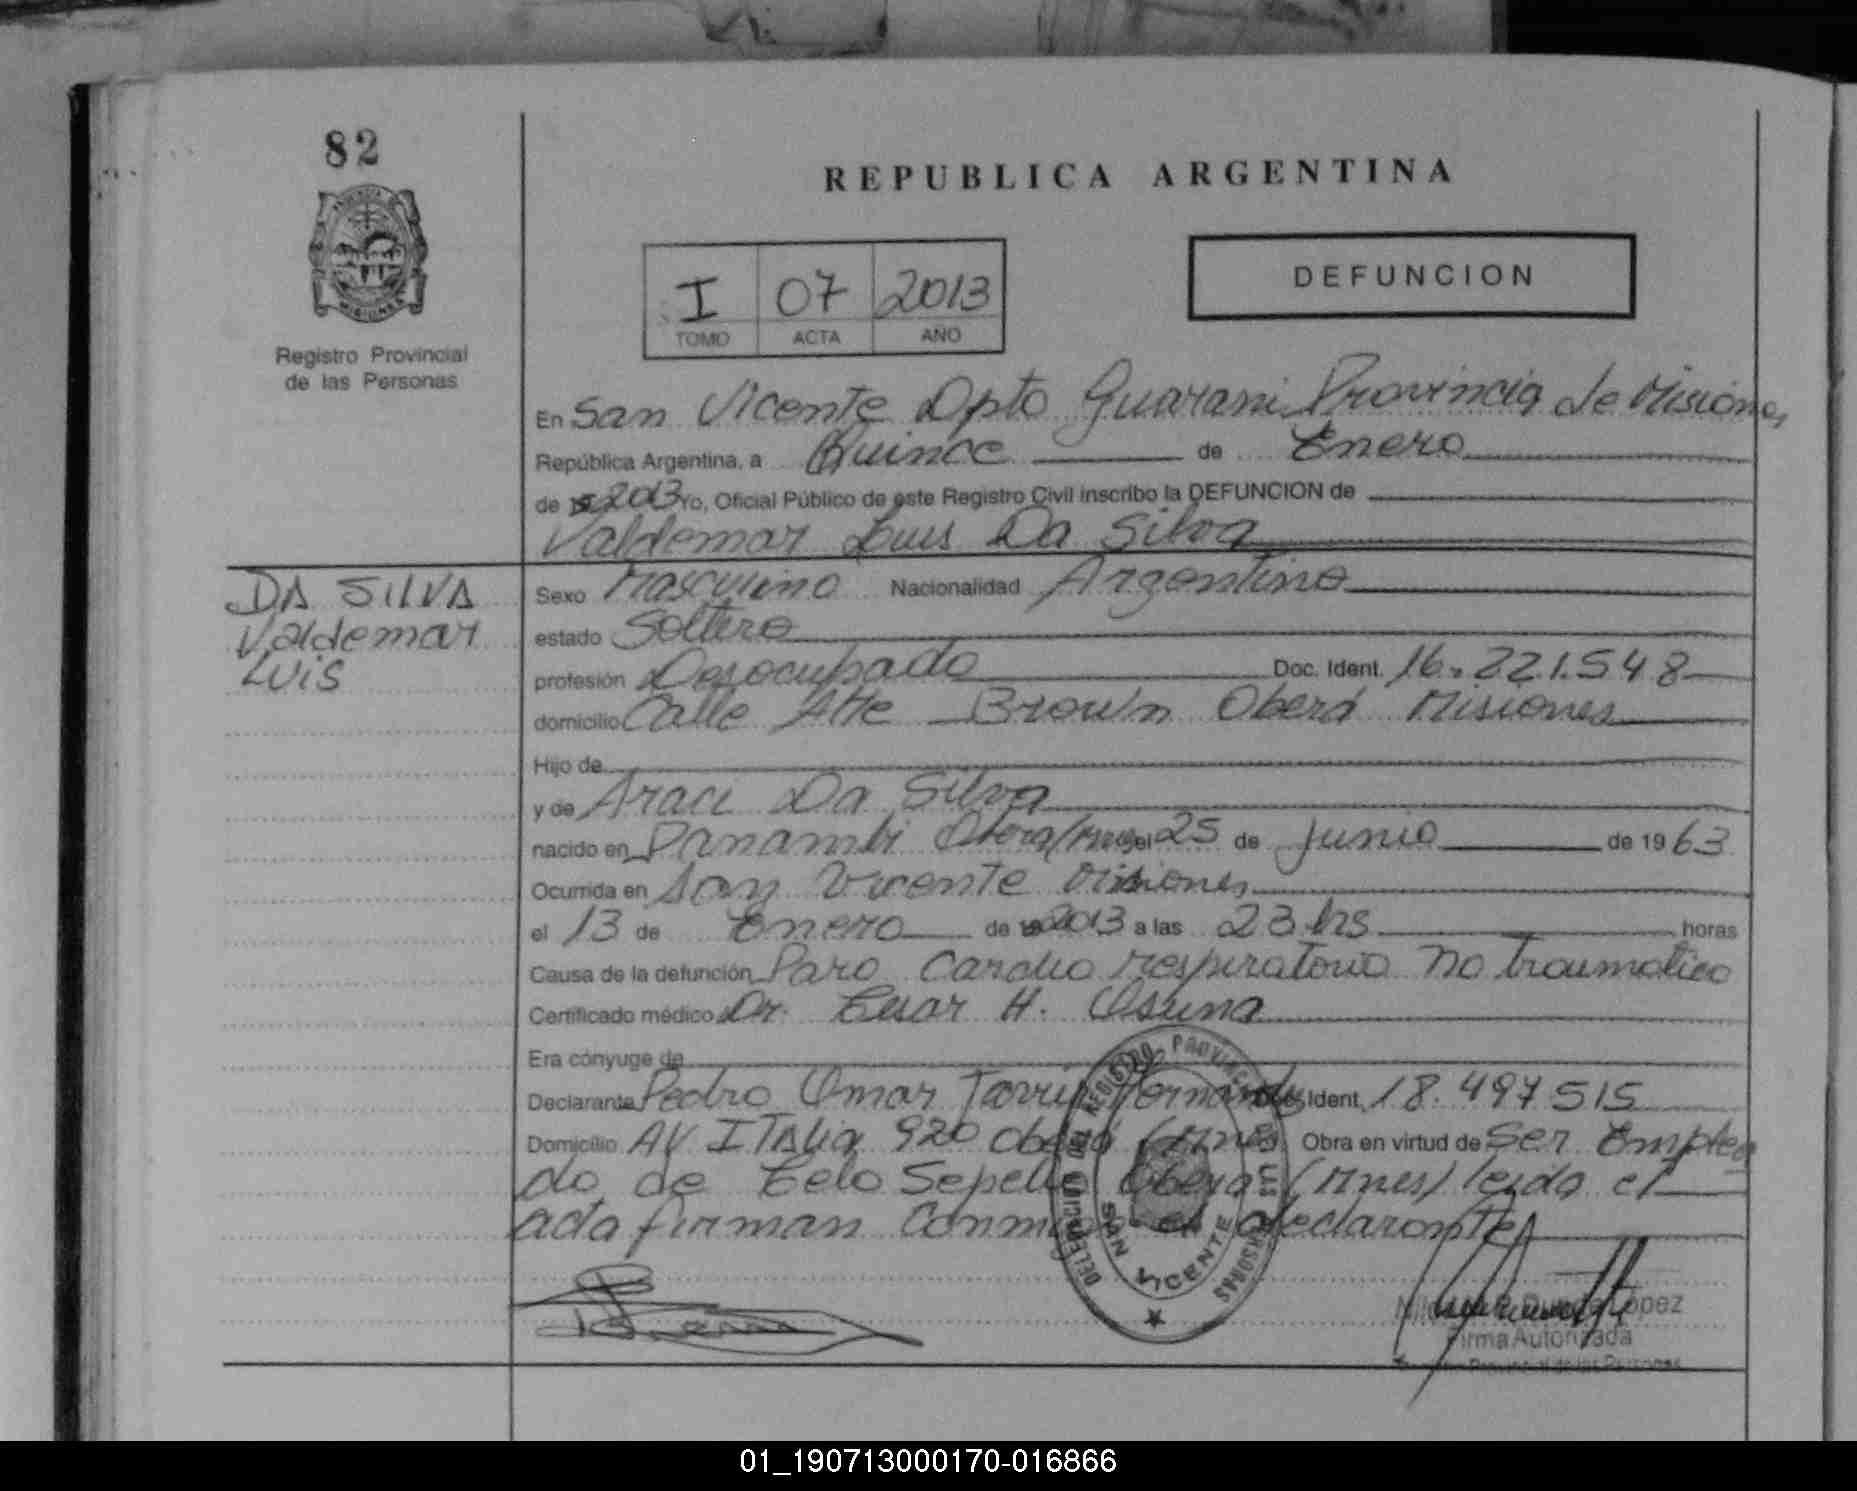 82
REPUBLICA ARGENTINA
DEFUNCION
I 07 2013
TOMO ACTA AÑO
Registro Provincial
de las Personas
En San Vicente Dpto Guarani Provincia de Misiones
República Argentina, a Quince de Enero
de 2013 Yo, Oficial Público de este Registro Civil inscribo la DEFUNCION de
Valdemar Luis Da Silva
DA SILVA
Valdemar
Luis
Sexo Masculino Nacionalidad Argentino
estado Soltero
profesión Desocupado Doc. Ident. 16.221.548
domicilio Calle Alte Brown Oberá Misiones
Hijo de
y de Araci Da Silva
nacido en Panambi Obera/Mnes el 25 de Junio de 1963
Ocurrida en San Vicente Misiones
el 13 de Enero de 2013 a las 23 hs horas
Causa de la defunción Paro Cardio respiratorio no traumatico
Certificado médico Dr. Cesar H. Osuna
Era cónyuge de
Declarante Pedro Omar Ident. 18.497515
Domicilio AV ITALia 920 Oberá (Mnes) Obra en virtud de Ser Emplea
do de Sepelio Obera (Mnes) leida el
acta firman Conmigo el declarante
DELEGACION DEL REGISTRO PROVINCIAL DE LAS PERSONAS
SAN VICENTE
Lopez
Firma Autorizada
Provincial de las Personas
01_190713000170-016866